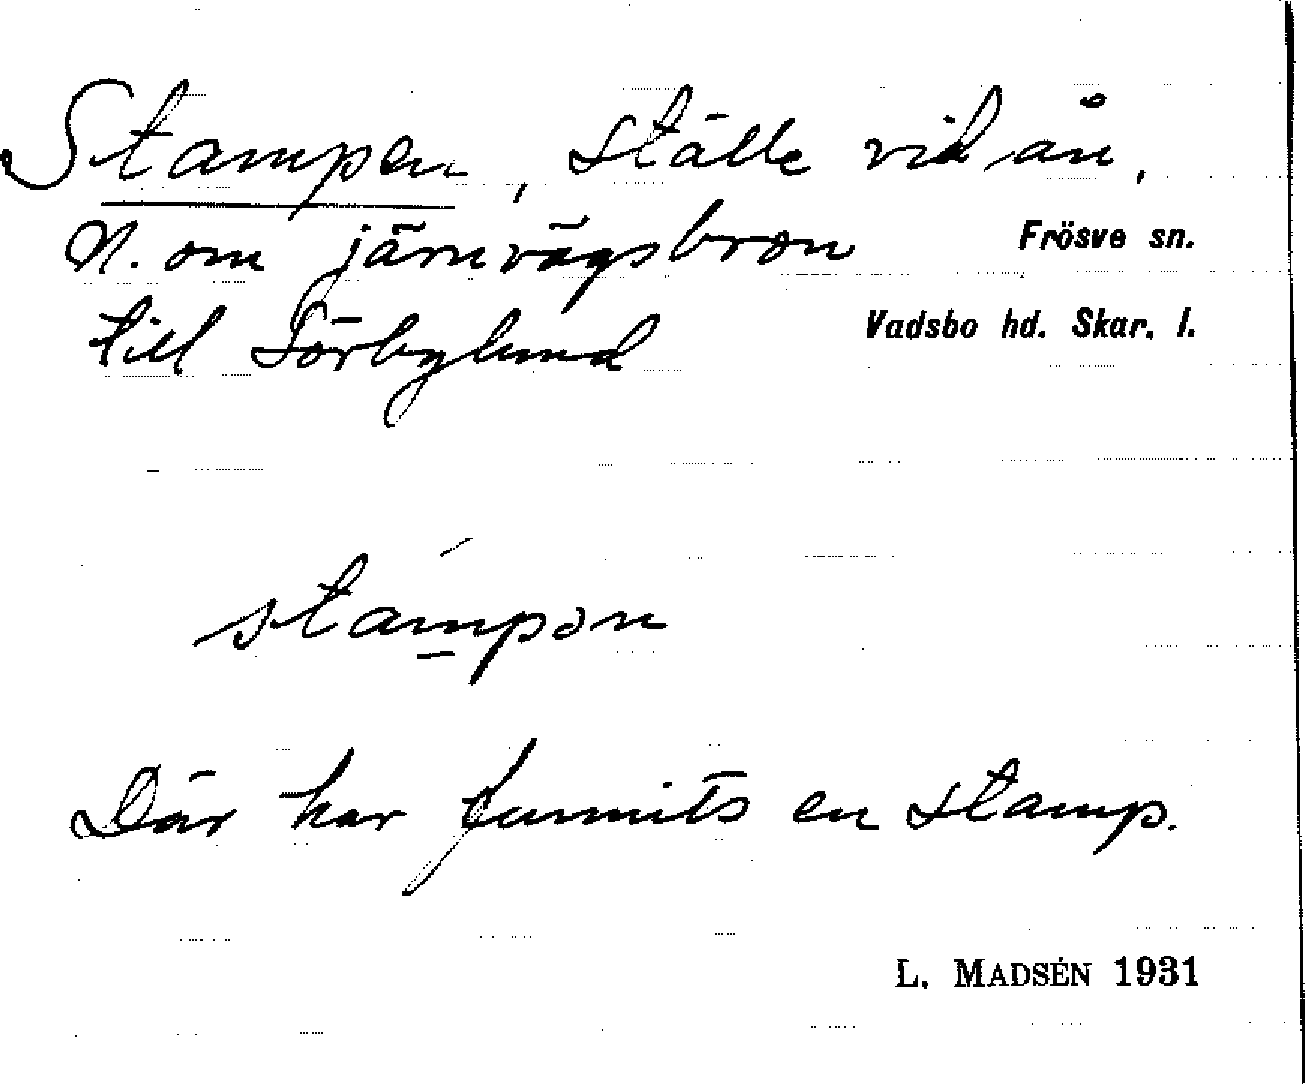 Stampen, ställe vid ån,
N. om järnvägsbron
Frösve sn.
till Sörbylund
Vadsbo hd. Skar. l.
stampən
Där har funnits en stamp.
L. MADSÉN 1931